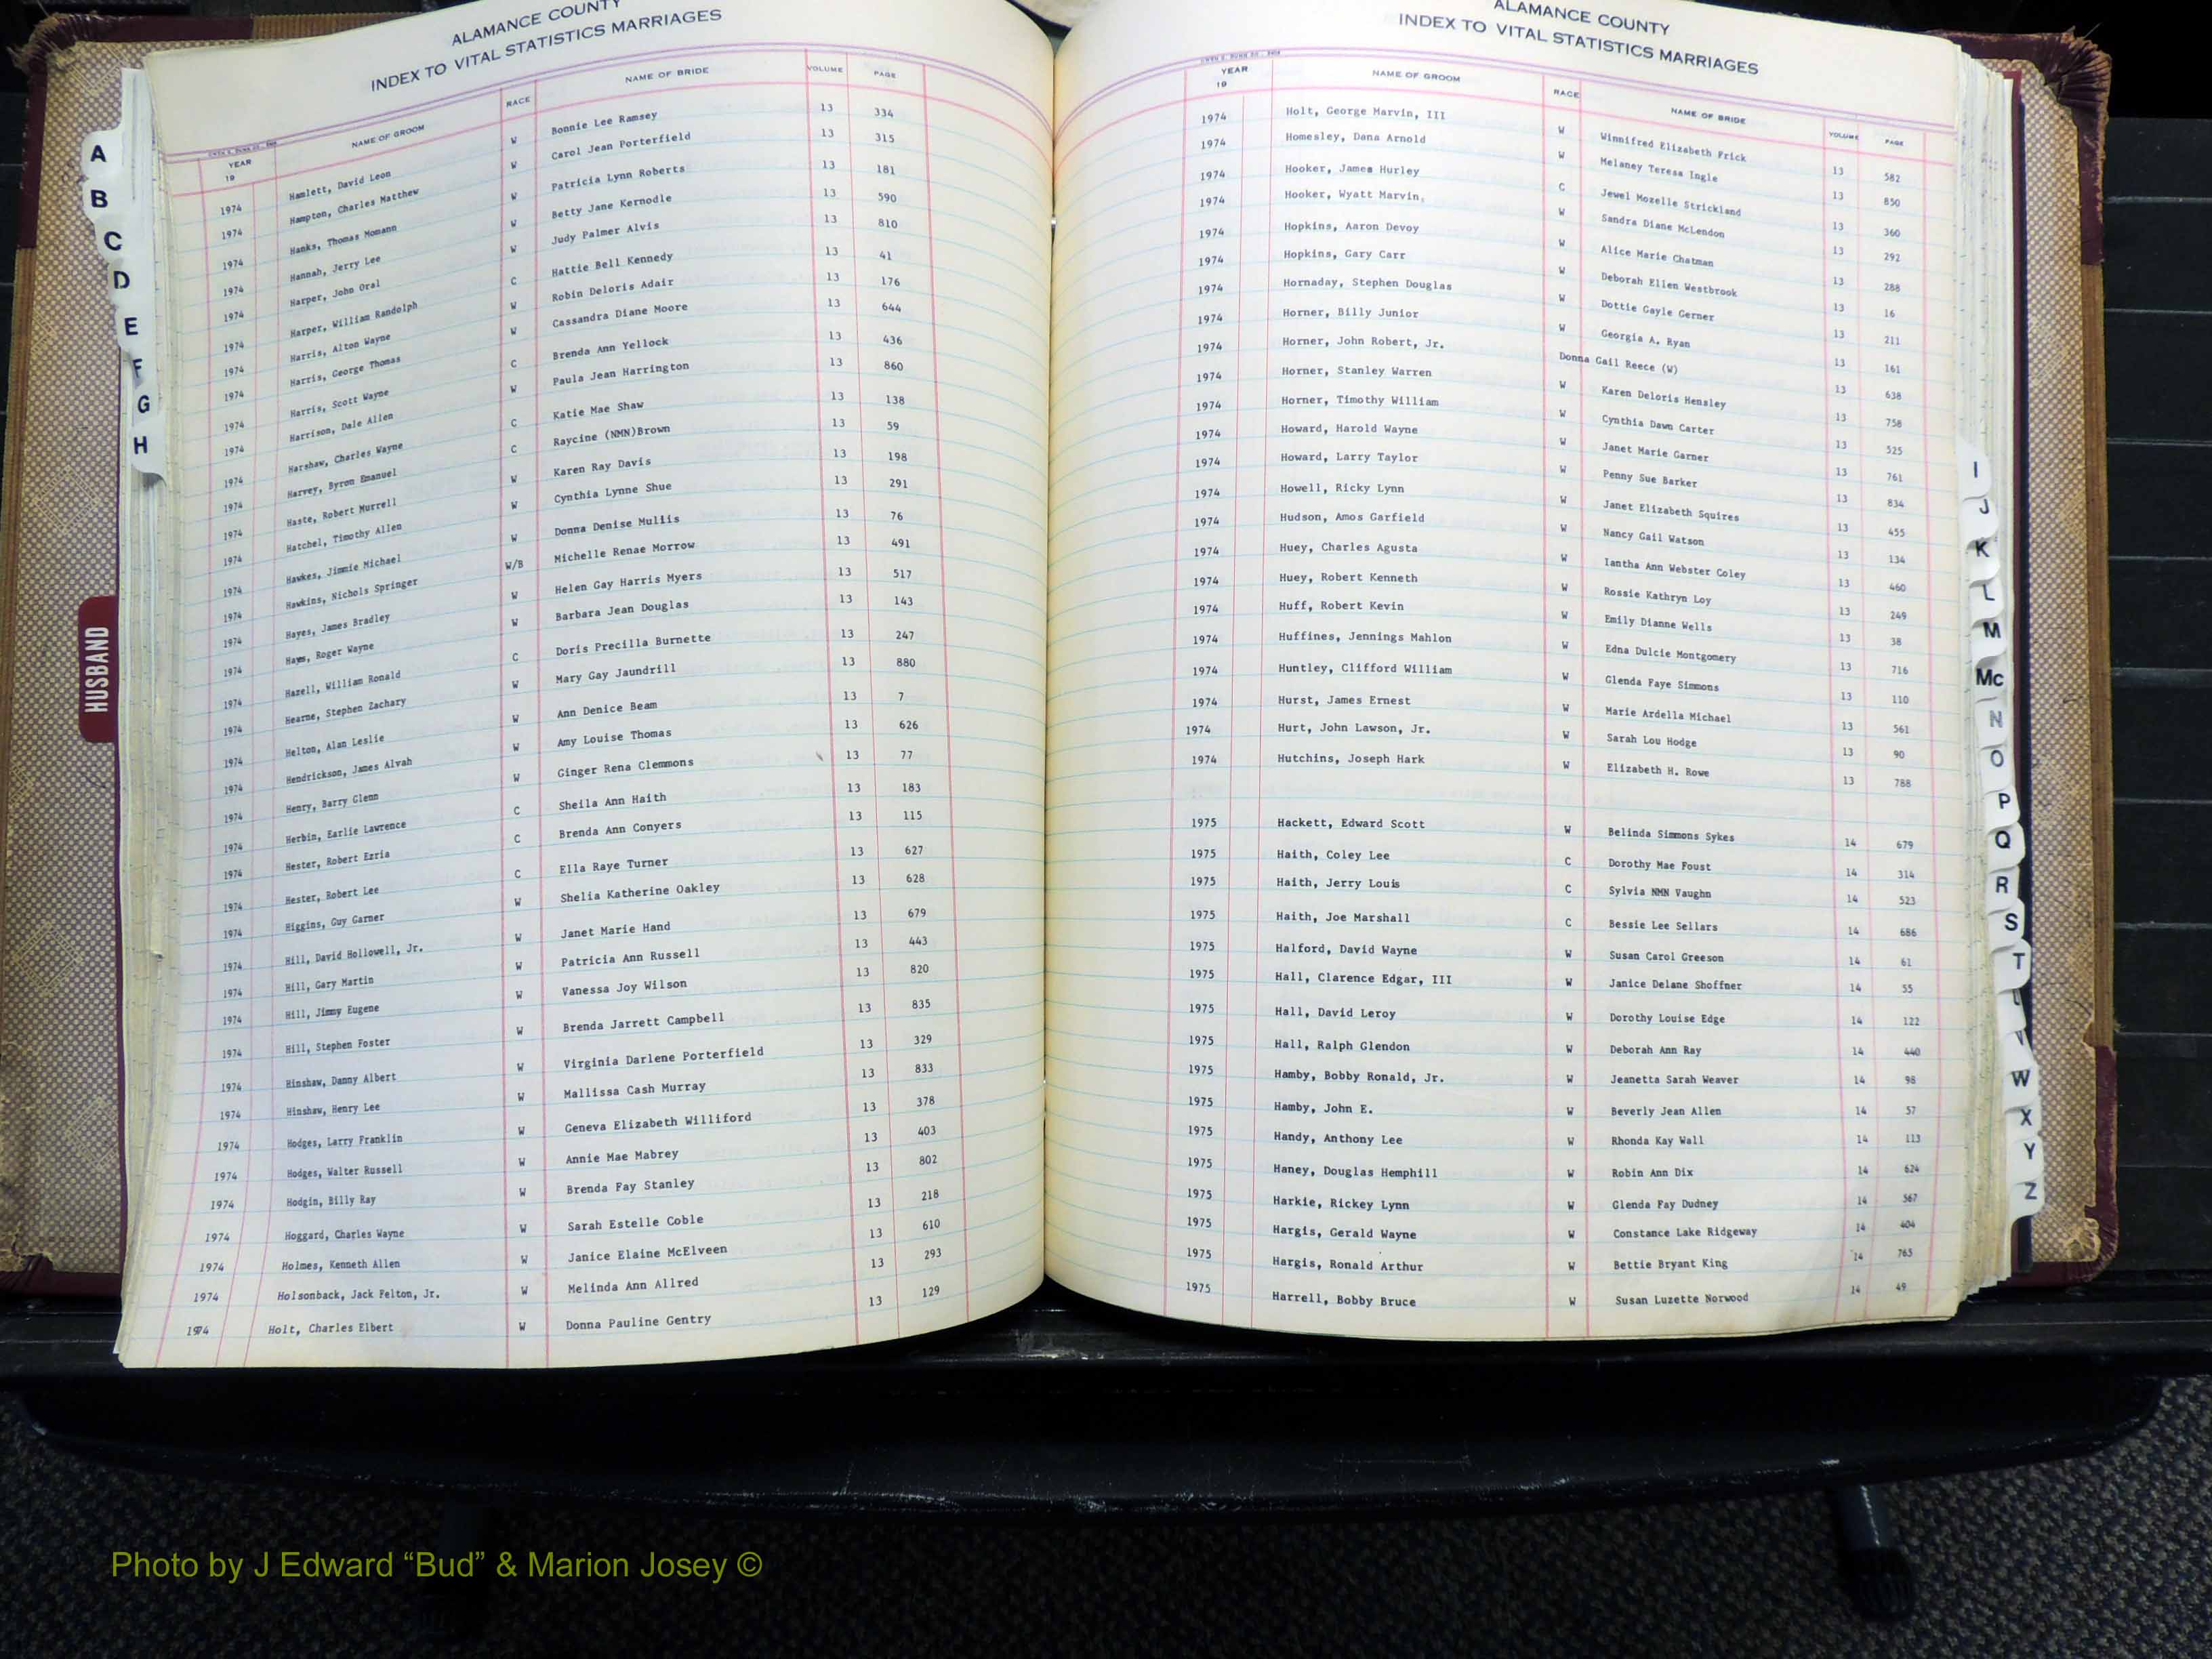 ALAMANCE COUNTY
INDEX TO VITAL STATISTICS MARRIAGES
YEAR 19 NAME OF GROOM RACE NAME OF BRIDE VOLUME PAGE
1974 Hamlett, David Leon W Bonnie Lee Ramsey 13 334
1974 Hampton, Charles Matthew W Carol Jean Porterfield 13 315
1974 Hanks, Thomas Momann W Patricia Lynn Roberts 13 181
1974 Hannah, Jerry Lee W Betty Jane Kernodle 13 590
1974 Harper, John Oral W Judy Palmer Alvis 13 810
1974 Harper, William Randolph C Hattie Bell Kennedy 13 41
1974 Harris, Alton Wayne W Robin Deloris Adair 13 176
1974 Harris, George Thomas W Cassandra Diane Moore 13 644
1974 Harris, Scott Wayne C Brenda Ann Yellock 13 436
1974 Harrison, Dale Allen W Paula Jean Harrington 13 860
1974 Harshaw, Charles Wayne C Katie Mae Shaw 13 138
1974 Harvey, Byron Emanuel C Raycine (NMN)Brown 13 59
1974 Haste, Robert Murrell W Karen Ray Davis 13 198
1974 Hatchel, Timothy Allen W Cynthia Lynne Shue 13 291
1974 Hawkes, Jimmie Michael W Donna Denise Mullis 13 76
1974 Hawkins, Nichols Springer W/B Michelle Renae Morrow 13 491
1974 Hayes, James Bradley W Helen Gay Harris Myers 13 517
1974 Hayes, Roger Wayne W Barbara Jean Douglas 13 143
1974 Hazell, William Ronald C Doris Precilla Burnette 13 247
1974 Hearne, Stephen Zachary W Mary Gay Jaundrill 13 880
1974 Helton, Alan Leslie W Ann Denice Beam 13 7
1974 Hendrickson, James Alvah W Amy Louise Thomas 13 626
1974 Henry, Barry Glenn W Ginger Rena Clemmons 13 77
1974 Herbin, Earlie Lawrence C Sheila Ann Haith 13 183
1974 Hester, Robert Ezria C Brenda Ann Conyers 13 115
1974 Hester, Robert Lee C Ella Raye Turner 13 627
1974 Higgins, Guy Garner W Shelia Katherine Oakley 13 628
1974 Hill, David Hollowell, Jr. W Janet Marie Hand 13 679
1974 Hill, Gary Martin W Patricia Ann Russell 13 443
1974 Hill, Jimmy Eugene W Vanessa Joy Wilson 13 820
1974 Hill, Stephen Foster W Brenda Jarrett Campbell 13 835
1974 Hinshaw, Danny Albert W Virginia Darlene Porterfield 13 329
1974 Hinshaw, Henry Lee W Mallissa Cash Murray 13 833
1974 Hodges, Larry Franklin W Geneva Elizabeth Williford 13 378
1974 Hodges, Walter Russell W Annie Mae Mabrey 13 403
1974 Hodgin, Billy Ray W Brenda Fay Stanley 13 802
1974 Hoggard, Charles Wayne W Sarah Estelle Coble 13 218
1974 Holmes, Kenneth Allen W Janice Elaine McElveen 13 610
1974 Holsonback, Jack Felton, Jr. W Melinda Ann Allred 13 293
1974 Holt, Charles Elbert W Donna Pauline Gentry 13 129
A
B
C
D
E
F
G
H
HUSBAND
ALAMANCE COUNTY
INDEX TO VITAL STATISTICS MARRIAGES
YEAR 19 NAME OF GROOM RACE NAME OF BRIDE VOLUME PAGE
1974 Holt, George Marvin, III W Winnifred Elizabeth Frick 13 582
1974 Homesley, Dana Arnold W Melaney Teresa Ingle 13 850
1974 Hooker, James Hurley C Jewel Mozelle Strickland 13 360
1974 Hooker, Wyatt Marvin, W Sandra Diane McLendon 13 292
1974 Hopkins, Aaron Devoy W Alice Marie Chatman 13 288
1974 Hopkins, Gary Carr W Deborah Ellen Westbrook 13 16
1974 Hornaday, Stephen Douglas W Dottie Gayle Gerner 13 211
1974 Horner, Billy Junior W Georgia A. Ryan 13 161
1974 Horner, John Robert, Jr. Donna Gail Reece (W) 13 638
1974 Horner, Stanley Warren W Karen Deloris Hensley 13 758
1974 Horner, Timothy William W Cynthia Dawn Carter 13 525
1974 Howard, Harold Wayne W Janet Marie Garner 13 761
1974 Howard, Larry Taylor W Penny Sue Barker 13 834
1974 Howell, Ricky Lynn W Janet Elizabeth Squires 13 455
1974 Hudson, Amos Garfield W Nancy Gail Watson 13 134
1974 Huey, Charles Agusta W Iantha Ann Webster Coley 13 460
1974 Huey, Robert Kenneth W Rossie Kathryn Loy 13 249
1974 Huff, Robert Kevin W Emily Dianne Wells 13 38
1974 Huffines, Jennings Mahlon W Edna Dulcie Montgomery 13 716
1974 Huntley, Clifford William W Glenda Faye Simmons 13 110
1974 Hurst, James Ernest W Marie Ardella Michael 13 561
1974 Hurt, John Lawson, Jr. W Sarah Lou Hodge 13 90
1974 Hutchins, Joseph Hark W Elizabeth H. Rowe 13 788
1975 Hackett, Edward Scott W Belinda Simmons Sykes 14 679
1975 Haith, Coley Lee C Dorothy Mae Foust 14 314
1975 Haith, Jerry Louis C Sylvia NMN Vaughn 14 523
1975 Haith, Joe Marshall C Bessie Lee Sellars 14 686
1975 Halford, David Wayne W Susan Carol Greeson 14 61
1975 Hall, Clarence Edgar, III W Janice Delane Shoffner 14 55
1975 Hall, David Leroy W Dorothy Louise Edge 14 122
1975 Hall, Ralph Glendon W Deborah Ann Ray 14 440
1975 Hamby, Bobby Ronald, Jr. W Jeanetta Sarah Weaver 14 98
1975 Hamby, John E. W Beverly Jean Allen 14 57
1975 Handy, Anthony Lee W Rhonda Kay Wall 14 113
1975 Haney, Douglas Hemphill W Robin Ann Dix 14 624
1975 Harkie, Rickey Lynn W Glenda Fay Dudney 14 567
1975 Hargis, Gerald Wayne W Constance Lake Ridgeway 14 404
1975 Hargis, Ronald Arthur W Bettie Bryant King 14 765
1975 Harrell, Bobby Bruce W Susan Luzette Norwood 14 49
I
J
K
L
M
Mc
N
O
P
Q
R
S
T
V
W
X
Y
Z
Photo by J Edward “Bud” & Marion Josey ©